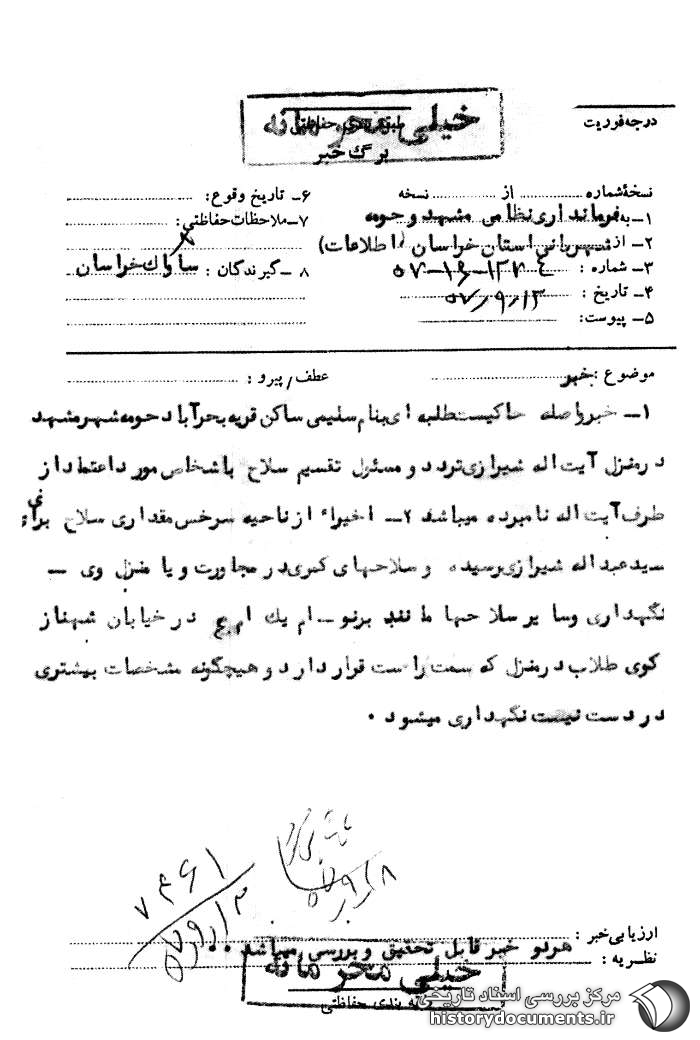 خیلی محرمانه
طبقه بندی حفاظتی
برگ خبر
درجه فوریت
نسخهٔ شماره .......... از .......... نسخه
۱ـ به فرمانداری نظامی مشهد و حومه
۲ـ از شهربانی استان خراسان (اطلاعات)
۳ـ شماره :
۴ـ تاریخ : ۵۷٫۹٫۱۳
۵ـ پیوست:
۶ـ تاریخ وقوع :
۷ـ ملاحظات حفاظتی :
۸ ـ گیرندگان : ساواک خراسان
موضوع : خبر
عطف / پیرو :
۱ـ خبر واصله حاکیست طلبه ای بنام سلیمی ساکن قریه بحرآباد حومه شهر مشهد
در منزل آیت اله شیرازی تردد و مسئول تقسیم سلاح باشخاص مورد اعتماد از
طرف آیت اله نامبرده میباشد ۲ـ اخیراً از ناحیه سرخس مقداری سلاح برای
سید عبداله شیرازی رسیده و سلاحهای کمری در مجاورت و یا منزل وی ـ
نگهداری و سایر سلاحها مانند برنو ـ ام یک در خیابان شهناز
کوی طلاب در منزل که سمت راست قرار دارد و هیچگونه مشخصات بیشتری
در دست نیست نگهداری میشود .
۷۴۶۱
ارزیابی خبر :
هر دو خبر قابل تحقیق و بررسی میباشد ..
نظریه :
خیلی محرمانه
طبقه بندی حفاظتی
مرکز بررسی اسناد تاریخی
historydocuments.ir